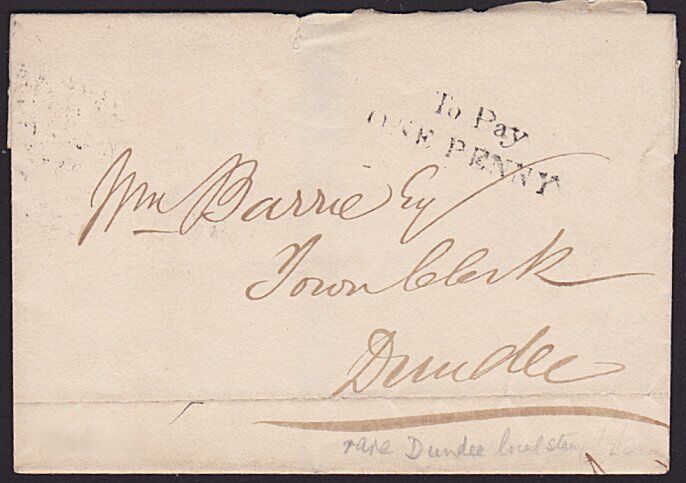 To Pay
ONE PENNY
Wm Barrie Esq
Town Clerk
Dundee
rare Dundee local stamp